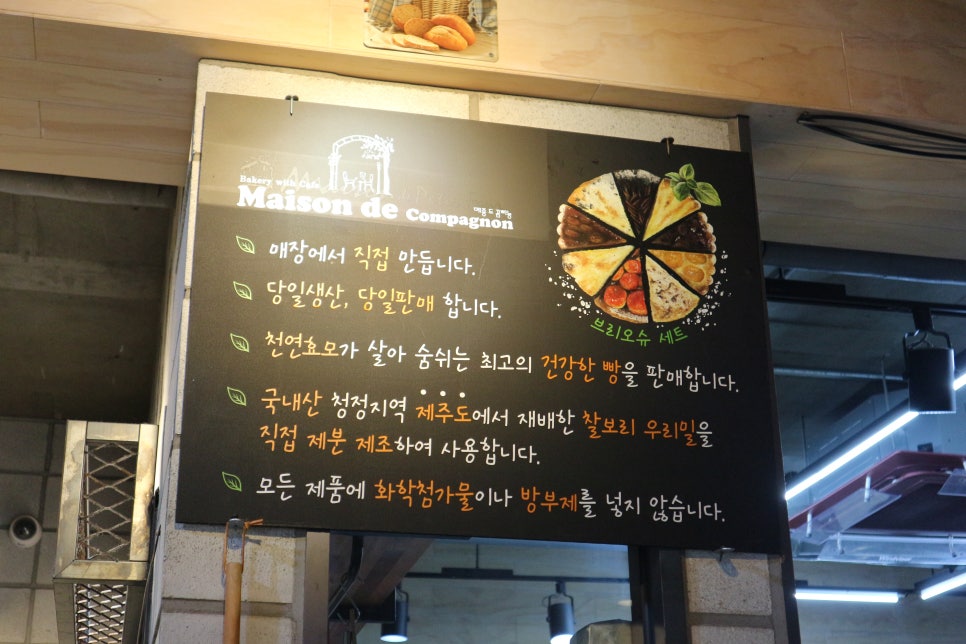 Bakery with Cafe
Maison de Compagnon
메종 드 꼼빠뇽
매장에서 직접 만듭니다.
당일생산, 당일판매 합니다.
브리오슈 세트
천연효모가 살아 숨쉬는 최고의 건강한 빵을 판매합니다.
국내산 청정지역 제주도에서 재배한 찰보리 우리밀을
직접 제분 제조하여 사용합니다.
모든 제품에 화학첨가물이나 방부제를 넣지 않습니다.